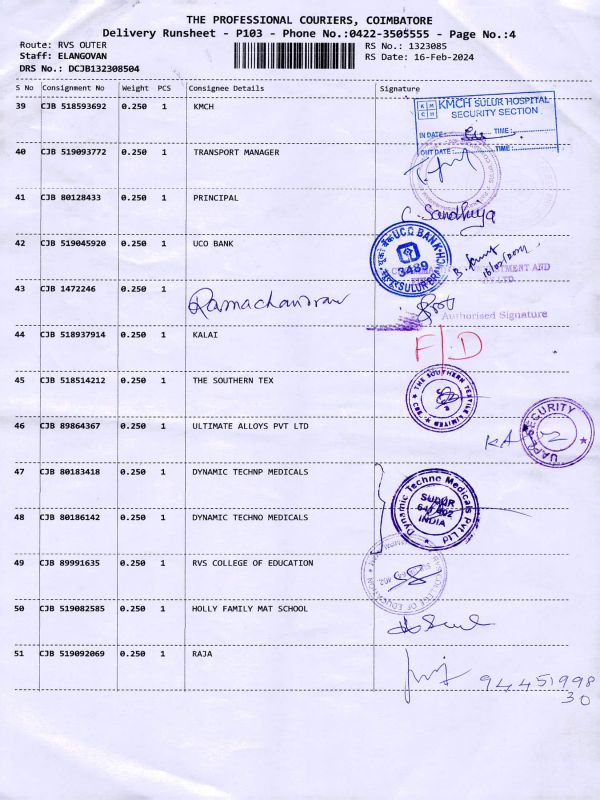 THE PROFESSIONAL COURIERS, COIMBATORE
Delivery Runsheet - P103 - Phone No.:0422-3505555 - Page No.:4
Route: RVS OUTER RS No.: 1323085
Staff: ELANGOVAN RS Date: 16-Feb-2024
DRS No.: DCJB132308504
S No Consignment No Weight PCS Consignee Details Signature
39 CJB 518593692 0.250 1 KMCH
KMCH SULUR HOSPITAL
SECURITY SECTION
IN DATE: TIME:
OUT DATE: TIME:
40 CJB 519093772 0.250 1 TRANSPORT MANAGER
41 CJB 80128433 0.250 1 PRINCIPAL
C. Sandhiya
42 CJB 519045920 0.250 1 UCO BANK
UCO BANK
3489
SULUR BRANCH
16/02/2024
43 CJB 1472246 0.250 1 Ramachandran
Authorised Signature
44 CJB 518937914 0.250 1 KALAI
F/D
45 CJB 518514212 0.250 1 THE SOUTHERN TEX
THE SOUTHERN TEXTILE LIMITED
46 CJB 89864367 0.250 1 ULTIMATE ALLOYS PVT LTD
SECURITY
47 CJB 80183418 0.250 1 DYNAMIC TECHNP MEDICALS
Dynamic Techno Medicals Pvt Ltd
INDIA
48 CJB 80186142 0.250 1 DYNAMIC TECHNO MEDICALS
49 CJB 89991635 0.250 1 RVS COLLEGE OF EDUCATION
COLLEGE OF EDUCATION
50 CJB 519082585 0.250 1 HOLLY FAMILY MAT SCHOOL
51 CJB 519092069 0.250 1 RAJA
94451998
30